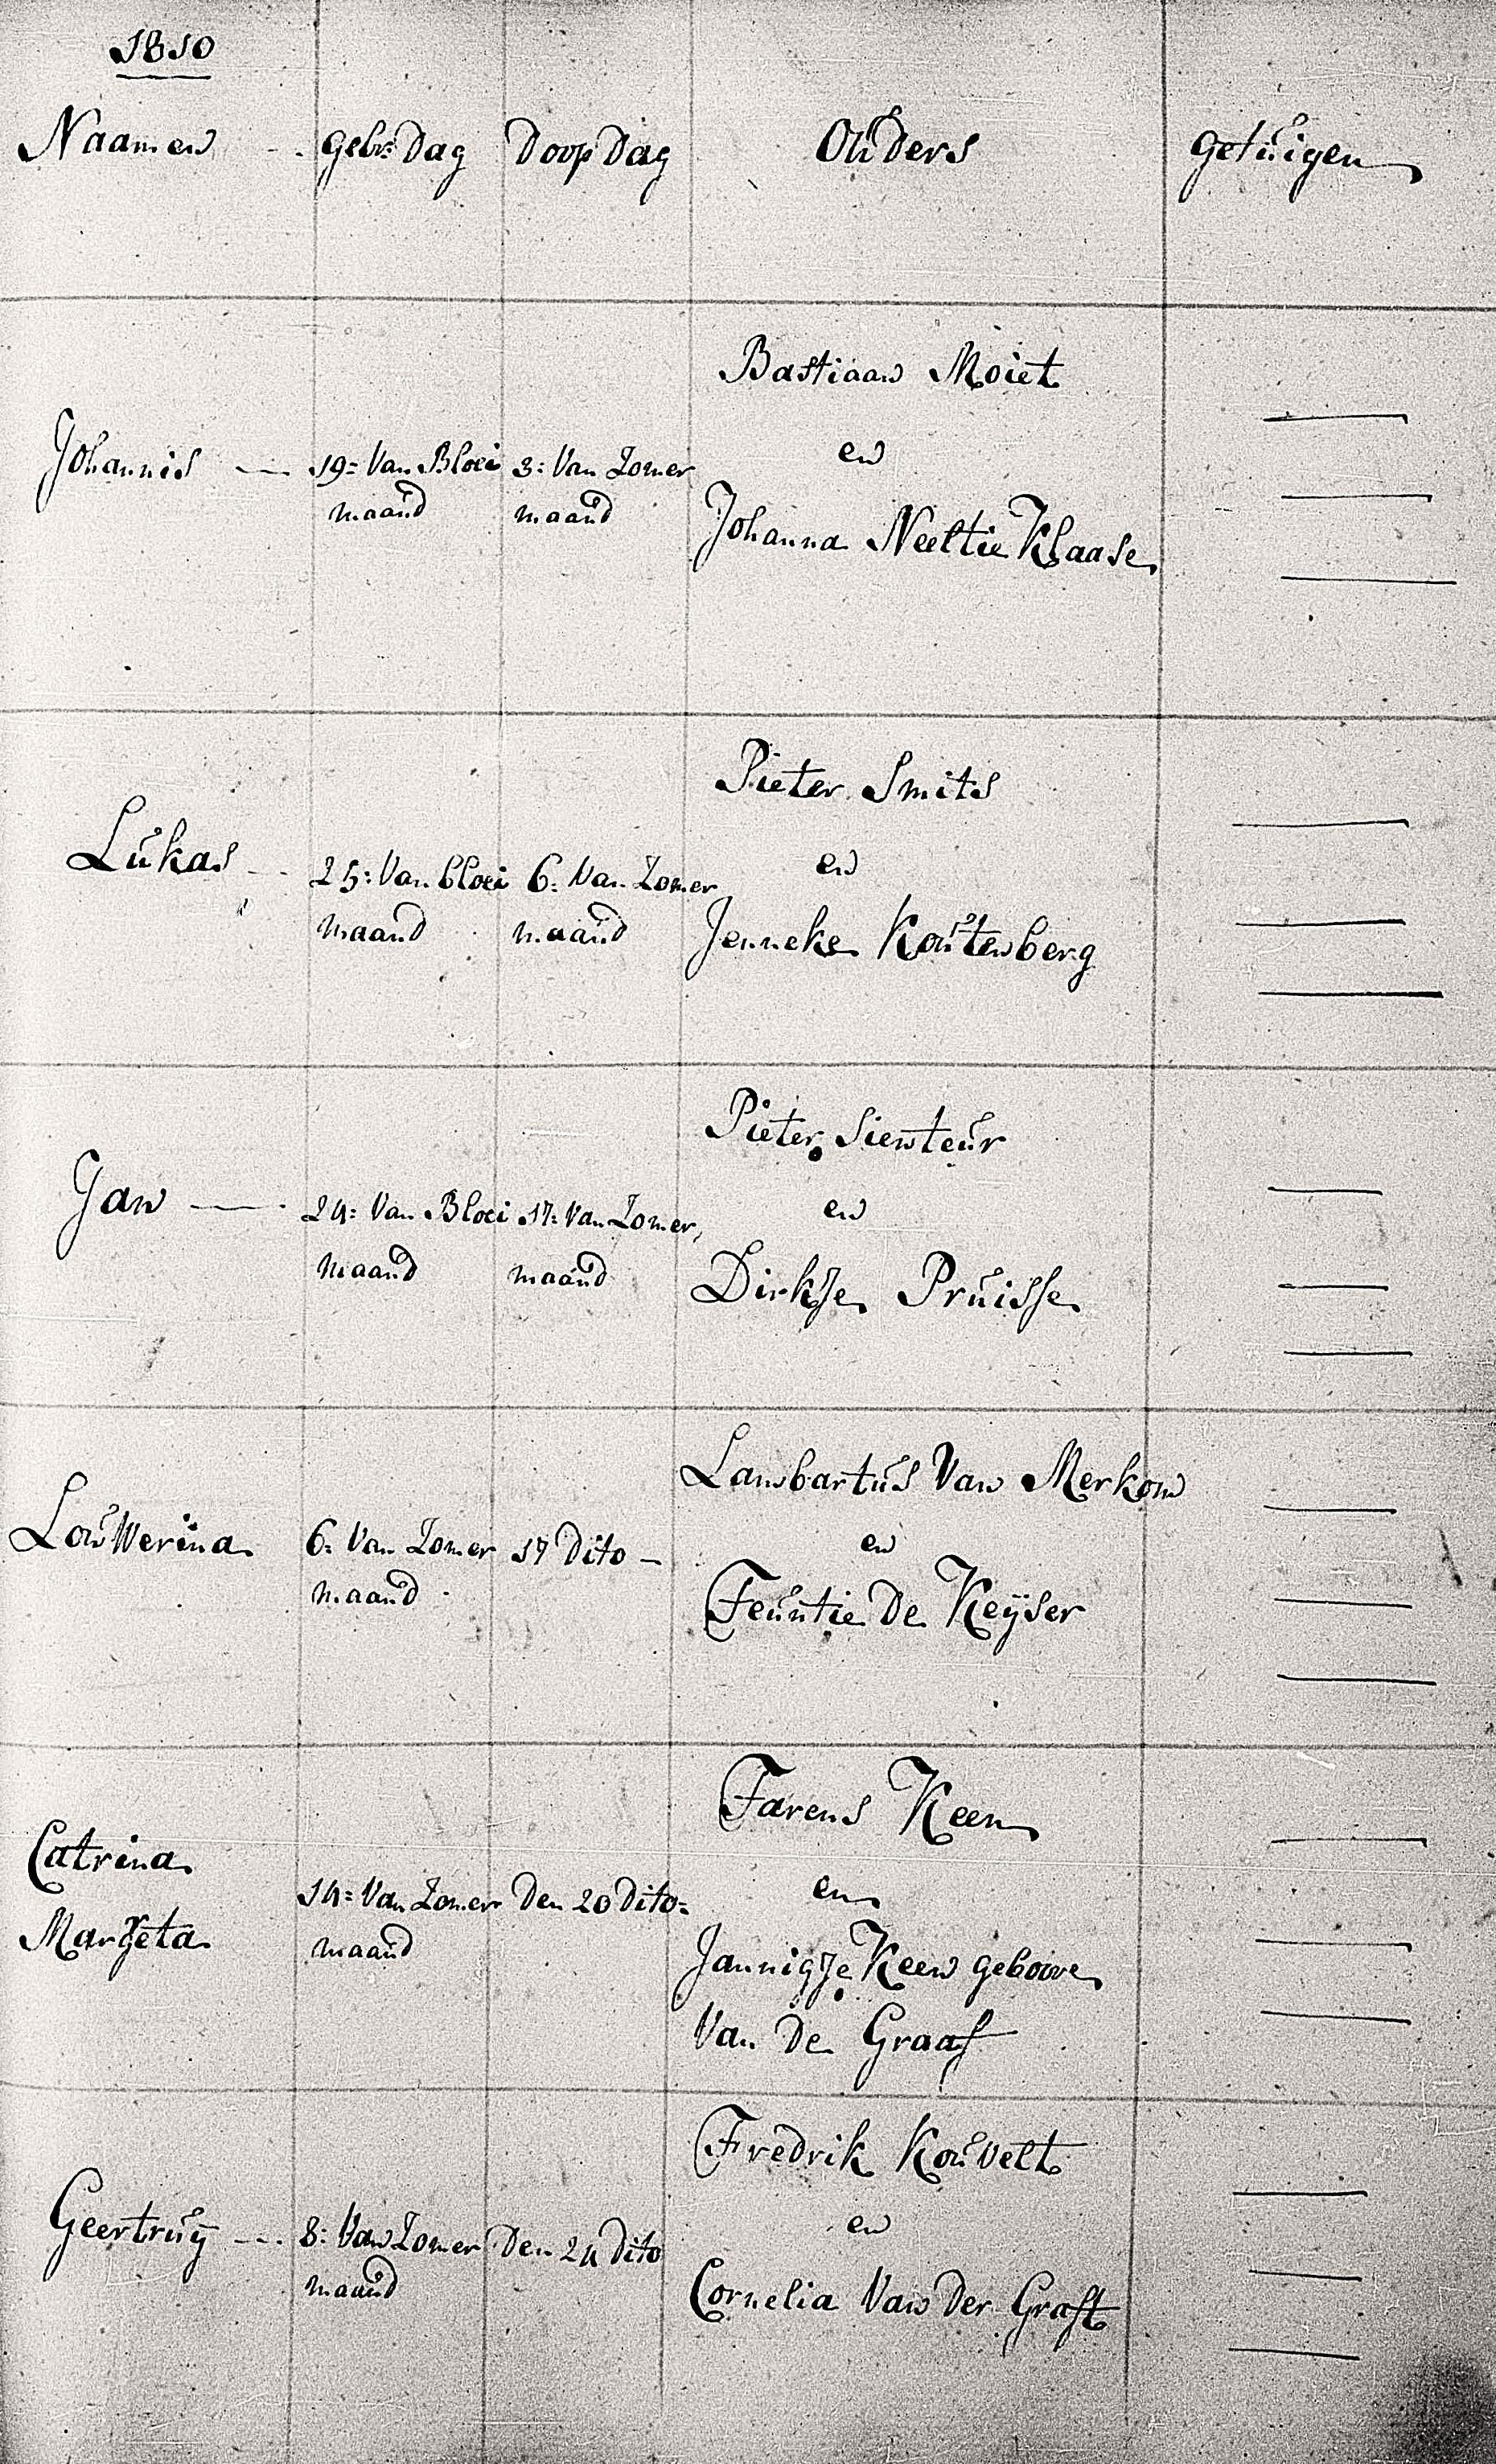 1810
Naamen gebr: Dag Doop Dag Ouders getuigen
Bastiaan Moiet
Johannis 19: Van Bloei 3: Van Zomer en
maand maand
Johanna Neeltie Klaase
Pieter Smits
Lukas 25: Van bloei 6: Van Zomer en
maand maand Jenneke Koutenberg
Pieter Sienteur
Jan 24: Van Bloei 17: Van Zomer en
maand maand Dirkje Pruisse
Lambartus Van Merkom
Louwerina 6: Van Zomer 17 Dito en
maand Teuntie De Keyser
Tarens Keen
Catrina 14: Van Zomer Den 20 Dito en
Margeta maand Jannigje Keen geboore
Van De Graaf
Fredrik Kouvelt
Geertruy 8: Van Zomer Den 24 Dito en
maand Cornelia Van Der Graft